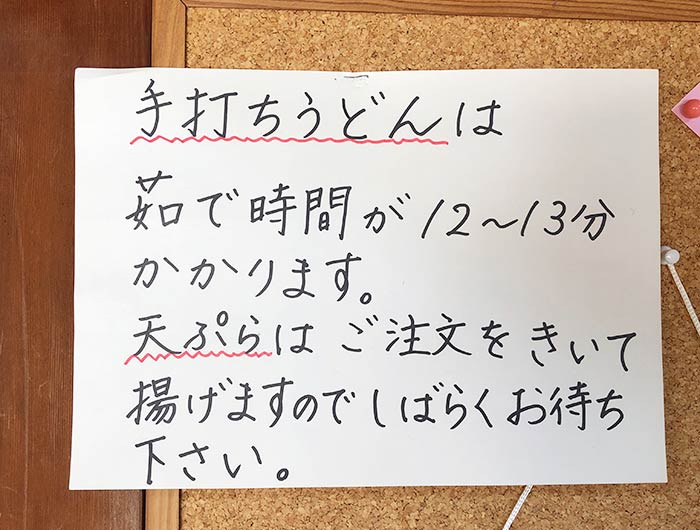 手打ちうどんは
茹で時間が12〜13分
かかります。
天ぷらはご注文をきいて
揚げますのでしばらくお待ち
下さい。